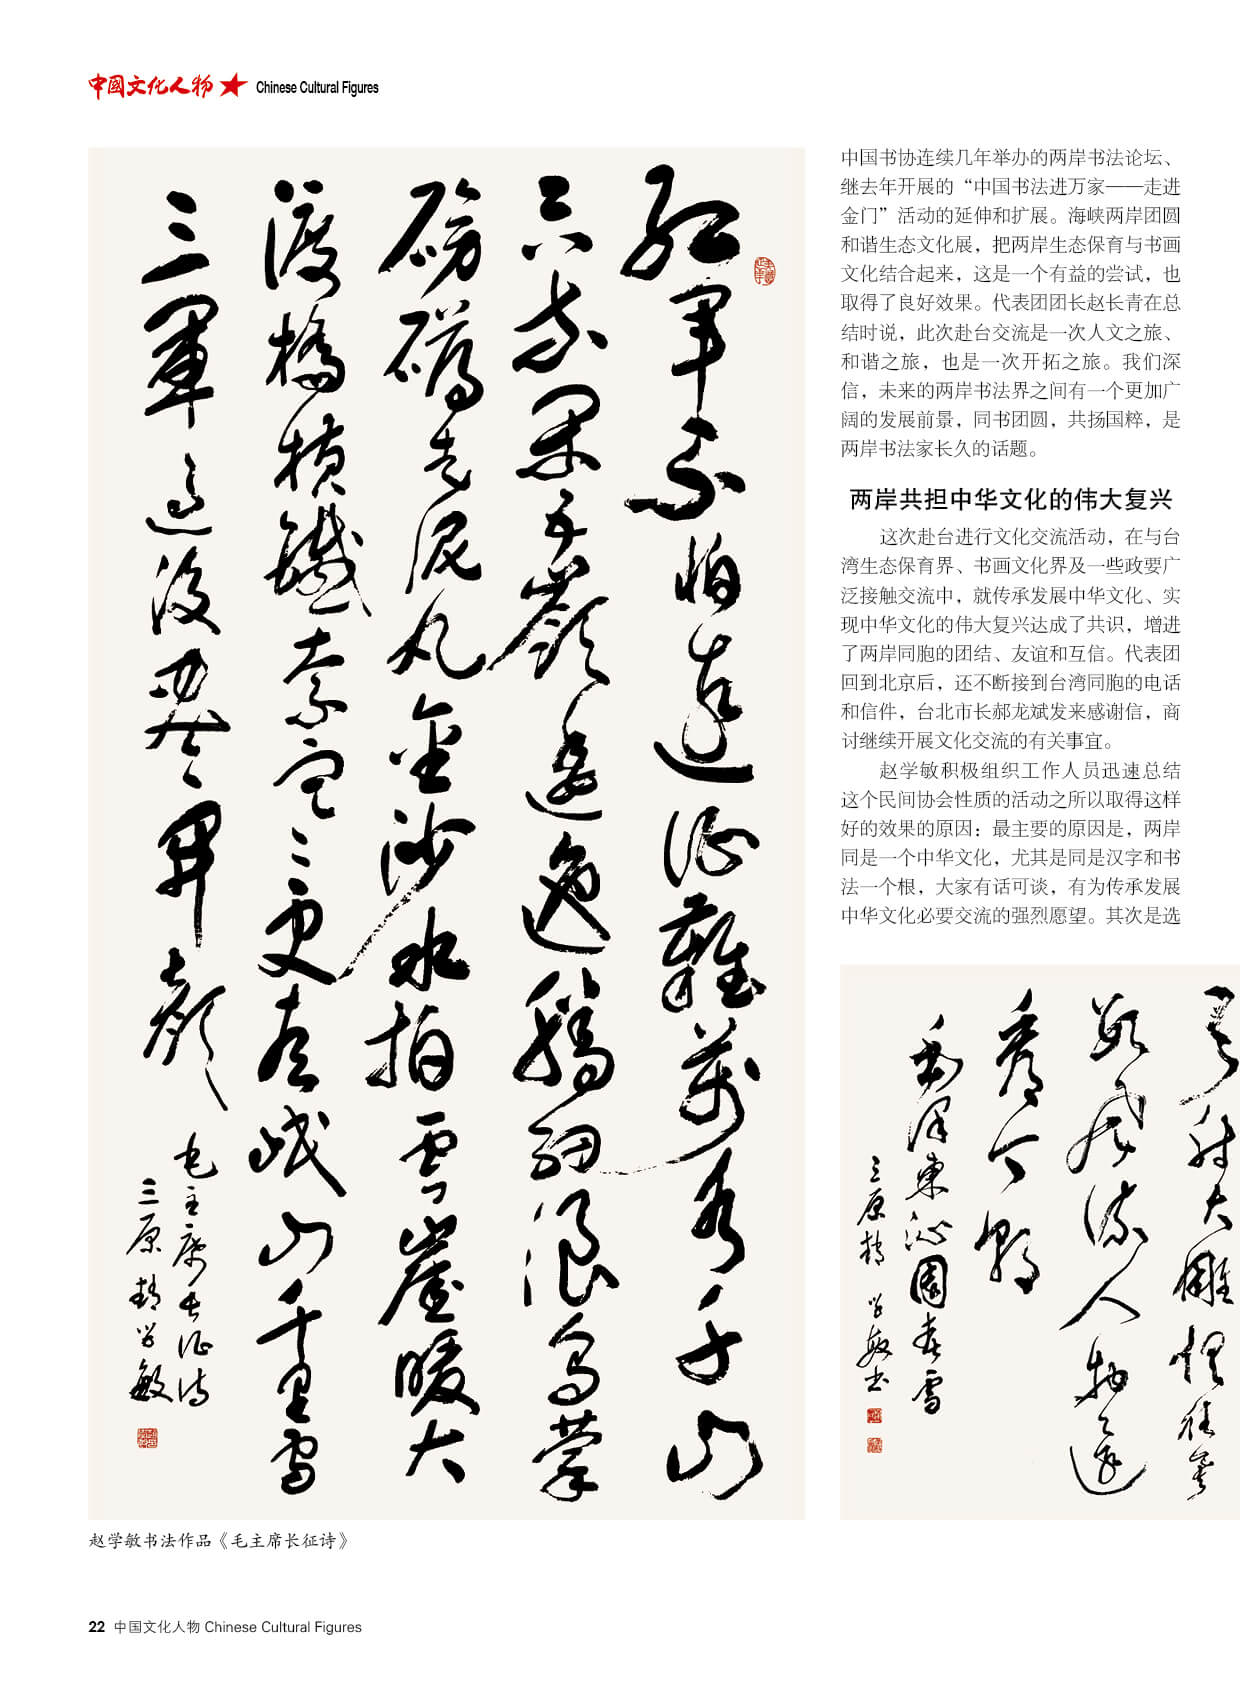 中國文化人物 Chinese Cultural Figures
红军不怕遠征難萬水千山
只等闲五嶺逶迤騰細浪烏蒙
磅礴走泥丸金沙水拍雲崖暖大
渡橋横鐵索寒更喜岷山千里雪
三軍過後盡開顔
毛主席长征诗
三原趙学敏
赵学敏书法作品《毛主席长征诗》
中国书协连续几年举办的两岸书法论坛、
继去年开展的“中国书法进万家——走进
金门”活动的延伸和扩展。海峡两岸团圆
和谐生态文化展，把两岸生态保育与书画
文化结合起来，这是一个有益的尝试，也
取得了良好效果。代表团团长赵长青在总
结时说，此次赴台交流是一次人文之旅、
和谐之旅，也是一次开拓之旅。我们深
信，未来的两岸书法界之间有一个更加广
阔的发展前景，同书团圆，共扬国粹，是
两岸书法家长久的话题。
两岸共担中华文化的伟大复兴
这次赴台进行文化交流活动，在与台
湾生态保育界、书画文化界及一些政要广
泛接触交流中，就传承发展中华文化、实
现中华文化的伟大复兴达成了共识，增进
了两岸同胞的团结、友谊和互信。代表团
回到北京后，还不断接到台湾同胞的电话
和信件，台北市长郝龙斌发来感谢信，商
讨继续开展文化交流的有关事宜。
赵学敏积极组织工作人员迅速总结
这个民间协会性质的活动之所以取得这样
好的效果的原因：最主要的原因是，两岸
同是一个中华文化，尤其是同是汉字和书
法一个根，大家有话可谈，有为传承发展
中华文化必要交流的强烈愿望。其次是选
弓射大雕俱往矣
数风流人物还
看今朝
毛泽東沁園春雪
三原趙学敏书
22 中国文化人物 Chinese Cultural Figures